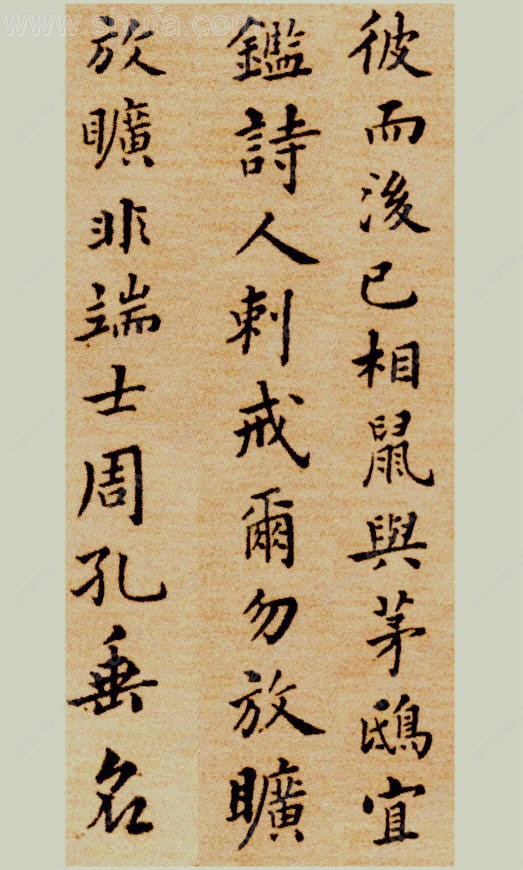 www.shufa.com
彼而後已相鼠與茅鴟宜
鑑詩人刺戒爾勿放矌
放矌非端士周孔垂名